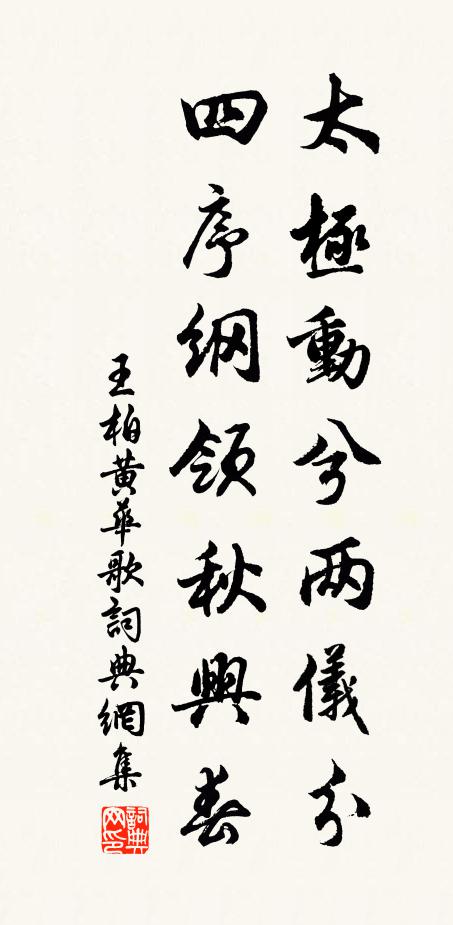 太極動兮兩儀分
四序綱領秋與春
王柏黃華歌詞典網集
詞典网印